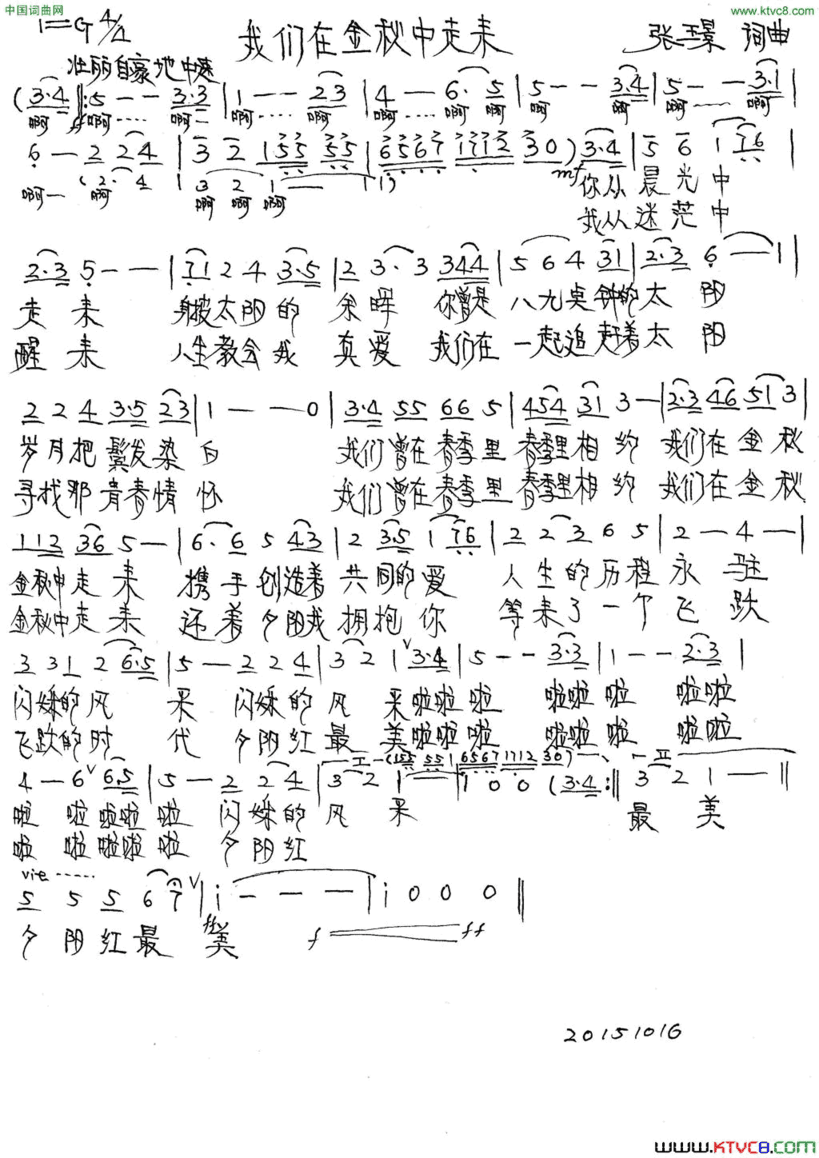 中国词曲网
www.ktvc8.com
1=G 4/4
我们在金秋中走来
张玉景 词曲
壮丽自豪地 中速
(3·4 ‖: 5 - - 3·3 | 1 - - 2 3 | 4 - 6· 5 | 5 - - 3·4 | 5 - - 3·1 |
啊 啊…… 啊一 啊…… 啊 啊…… 啊 啊…… 啊 啊…… 啊
6 - 2 2 4 | 3 2 1 5 5 5 5 | 6 5 6 7 1 7 1 2 3 0 ) 3·4 | 5 6 1 7 6 |
(2· 4 | 3 2 1 - | 1)
mf
啊一 啊 啊 啊 啊
你从 晨光中
我从 迷茫中
2·3 5 - - | 7 1 2 4 3·5 | 2 3· 3 3 4 4 | 5 6 4 3 1 | 2·3 6 - |
走来 身披太阳的 余晖 你曾是 八九点钟的太阳
醒来 人生教会我 真爱 我们在 一起追赶着太阳
2 2 4 3·5 2 3 | 1 - - 0 | 3·4 5 5 6 6 5 | 4 5 4 3 1 3 - | 2·3 4 6 5 1 3 |
岁月把鬓发染白 我们曾在春季里 春季里相约 我们在金秋
寻找那青春情怀 我们曾在春季里 春季里相约 我们在金秋
1 1 2 3 6 5 - | 6· 6 5 4 3 | 2 3·5 1 7 6 | 2 2 3 6 5 | 2 - 4 - |
金秋中走来 携手创造着 共同的爱 人生的历程 永驻
金秋中走来 还着夕阳我 拥抱你 等来了一个飞跃
3 3 1 2 6·5 | 5 - 2 2 4 | 3 2 1 ∨ 3·4 | 5 - - 3·3 | 1 - - 2·3 |
闪烁的风采 闪烁的风采 啦啦啦 啦啦啦 啦啦
飞跃的时代 夕阳红最美 啦啦啦 啦啦啦 啦啦
4 - 6 ∨ 6·5 | 5 - 2 2 4 | 3 2 1 - | 1 0 0 (3·4 :‖ 3 2 1 - ‖
(1 5 5 5 5 1 | 6 5 6 7 1 7 1 2 3 0)
啦 啦啦啦 啦 闪烁的风采 最美
啦 啦啦啦 啦 夕阳红
vit ……
5 5 5 6 7 ∨ | i - - - | i 0 0 0 ‖
夕阳红最美
f ff
20151016
www.KTVC8.com